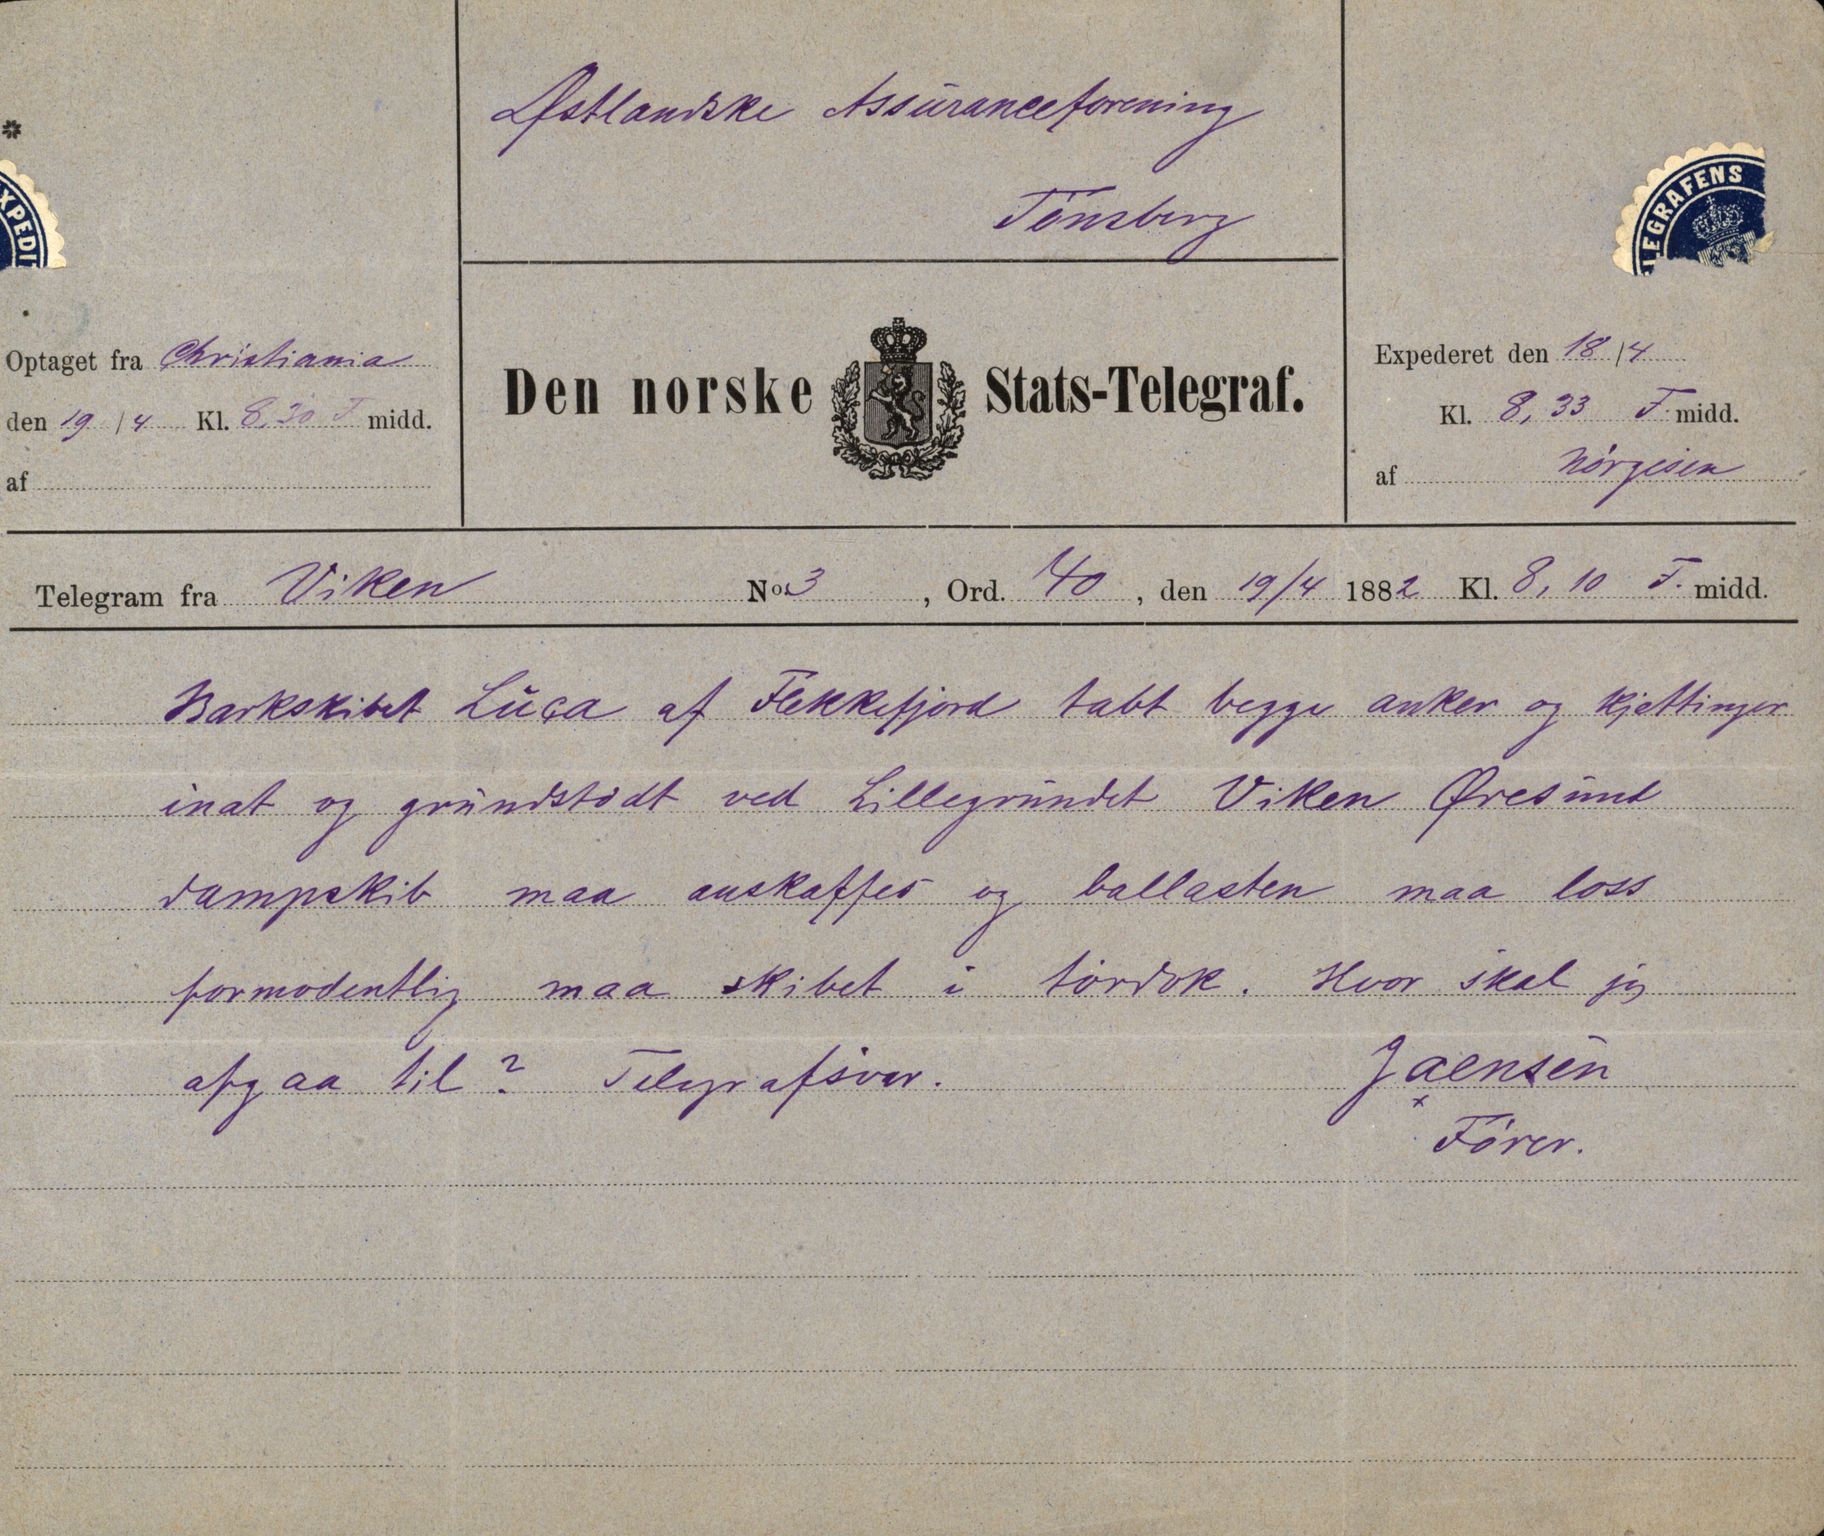 Østlandske Assuranceforening
Tönsberg
XPEDI
LEGRAFENS
Optaget fra Christiania
den 19/4 Kl. 8,30 F midd.
af
Den norske Stats-Telegraf.
Expederet den 18/4
Kl. 8,33 F. midd.
af Nörgesen
Telegram fra Viken No. 3, Ord. 40, den 19/4 1882 Kl. 8,10 F. midd.
Barkskibet Luça af Flekkefjord tabt begge anker og kjettinger
inat og grundstødt ved Lillegrundet Viken Øresund
dampskib maa anskaffes og ballasten maa loss
formodentlig maa skibet i tördok. Hvor skal jeg
afgaa til? Telegrafsvar. Jaensen
Förer.